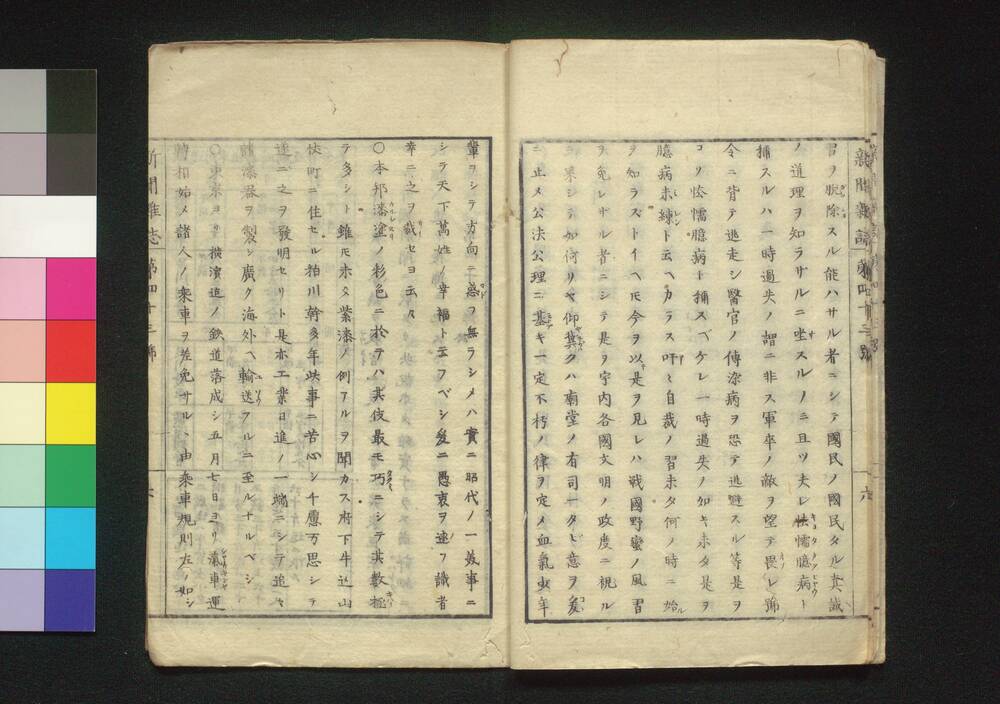 新聞雜誌 第四十三號 六
習ヲ脱除スル能ハサル者ニシテ國民ノ國民タル真誠
ノ道理ヲ知ラサルニ坐スルノミ且ツ夫レ怯懦臆病ト
稱スルハ一時過失ノ謂ニ非ス軍卒ノ敵ヲ望テ畏レ號
令ニ背テ逃走シ醫官ノ傳染病ヲ恐テ逃避スル等是ヲ
コソ怯懦臆病ト稱スベケレ一時過失ノ如キ未タ是ヲ
臆病未練ト云ヘカラス吁々自裁ノ習未タ何ノ時ニ始
ヲ知ラストイヘ𪜈今ヲ以テ是ヲ見レハ戰國野蠻ノ風習
ヲ免レサル者ニシテ是ヲ宇内各國文明ノ政度ニ視ル
果シテ如何ソヤ仰冀クハ廟堂ノ有司一タビ意ヲ爰
ニ止メ公法公理ニ基キ一定不朽ノ律ヲ定メ血氣少年
輩ヲシテ方向ニ惑フ無ラシメハ實ニ昭代ノ一美事ニ
シテ天下萬姓ノ幸福ト云フベシ爰ニ愚衷ヲ述フ識者
幸ニ之ヲ裁セヨ云々
〇本邦漆塗ノ彩色ニ於テハ其伎最モ巧ニシテ其數極
テ多シト雖𪜈未タ紫漆ノ例アルヲ聞カス府下牛込山
伏町ニ住セル柏川幹多年此事ニ苦心シ千慮万思シテ
遂ニ之ヲ發明セリト是亦工業日進ノ一端ニシテ追々
漆器ヲ製シ廣ク海外ヘ輸送スルニ至ルナルベシ
〇東京ヨリ横濱迄ノ鉄道落成シ五月七日ヨリ瀛車運
轉相始メ諸人ノ乘車ヲ差免サルヽ由乘車規則左ノ如シ
新聞雜誌 第四十三號 六